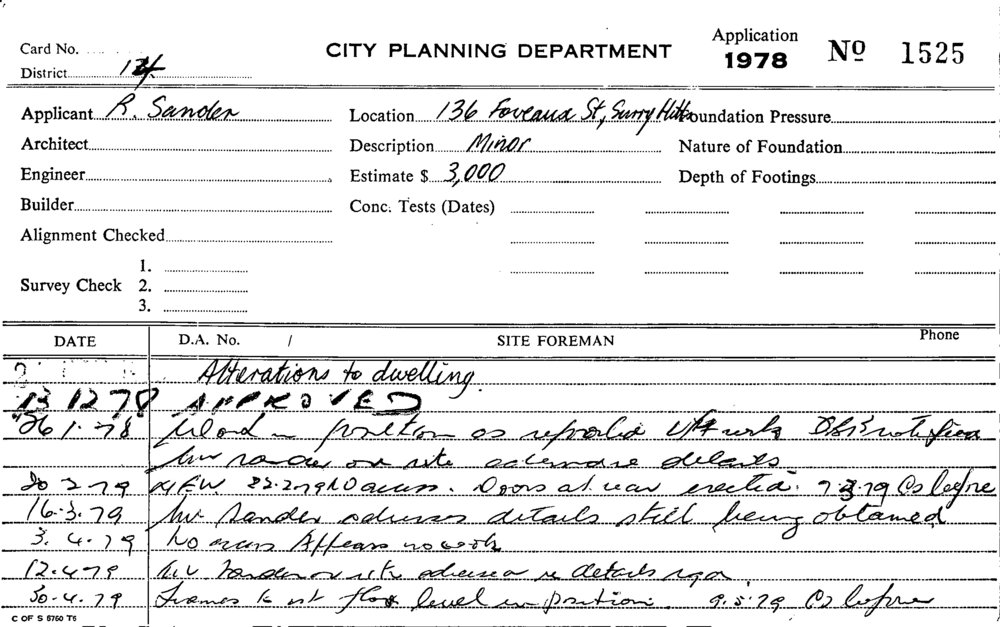 Card No.
CITY PLANNING DEPARTMENT
Application
1978 Nº 1525
District 14
Applicant R. Sander
Location 136 Foveaux St, Surry Hills
Foundation Pressure
Architect
Description Minor
Nature of Foundation
Engineer
Estimate $ 3,000
Depth of Footings
Builder
Conc. Tests (Dates)
Alignment Checked
Survey Check 1.
2.
3.
DATE D.A. No. / SITE FOREMAN Phone
Alterations to dwelling.
13 12 78 APPROVED
26 1. 78 in position as reported
on site details
20 2 79 22-2-79 No access. Doors at rear erected. 7-3-79 Cs before
16.3.79 Mr Sander advises details still being obtained
3. 4.79 No access Appears no work
12.4.79 Mr Sander on site re details
30.4.79 Frames to 1st floor level in position. 9.5.79 Cs before
C OF S 5760 T5